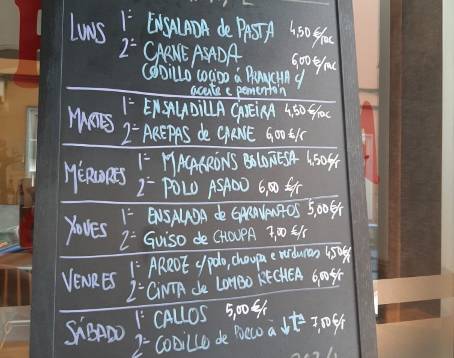 LUNS 1º ENSALADA de PASTA 4,50€/rac
2º CARNE ASADA 6,00€/rac
CODILLO COCIDO á PRANCHA c/
aceite e pementón
MARTES 1º ENSALADILLA CASEIRA 4,50€/rac
2º AREPAS de CARNE 6,00€/r
MÉRCORES 1º MACARRÓNS BOLOÑESA 4,50€/r
2º POLO ASADO 6,00€/r
XOVES 1º ENSALADA de GARAVANZOS 5,00€/r
2º GUISO de CHOUPA 7,00€/r
VENRES 1º ARROZ c/polo, choupa e verduras 4,50€/r
2º CINTA de LOMBO RECHEA 6,00€/r
SÁBADO 1º CALLOS 5,00€/r
2º CODILLO de PORCO á 7,50€/r